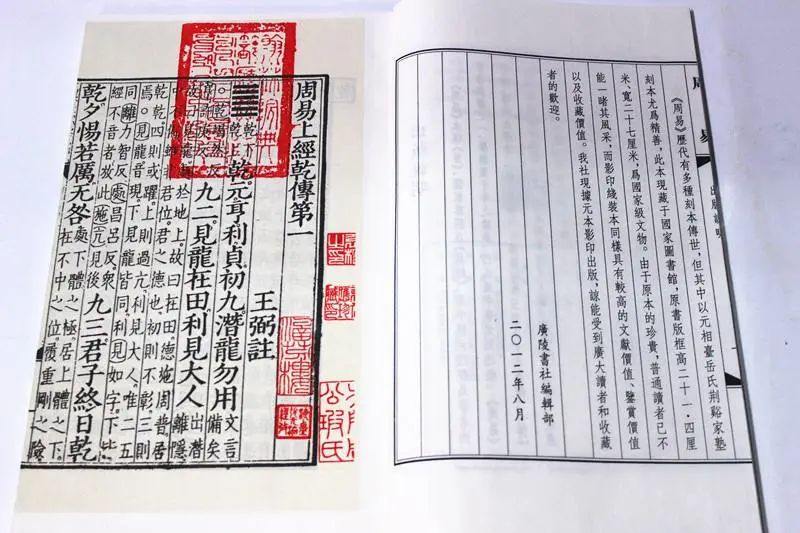 周易
出版說明
《周易》歷代有多種刻本傳世，但其中以元相臺岳氏荊谿家塾
刻本尤爲精善，此本現藏于國家圖書館，原書版框高二十一·四厘
米、寬二十七厘米，爲國家級文物。由于原本的珍貴，普通讀者已不
能一睹其風采，而影印綫裝本同樣具有較高的文獻價值、鑒賞價值
以及收藏價值。我社現據元本影印出版，諒能受到廣大讀者和收藏
者的歡迎。
廣陵書社編輯部
二〇一二年八月
周易上經乾傳第一
王弼註
乾下乾上 乾。元亨利貞。初九。潛龍勿用 文言備矣
九二。見龍在田。利見大人 出潛離隱
故曰見龍。處於地上。故曰在田。德施周普。居
非君位。君之德也。初則不彰。三則
乾乾。四則或躍。上則過亢。利見大人。唯二五
焉。見龍音現。下見龍皆同。利見如字。下皆
同。離力智反。處昌呂反。衆
經不音者放此。施亢見後
九三。君子終日乾
乾。夕惕若厲。无咎 處下體之極。居上體之下。
在不中之位。履重剛之險